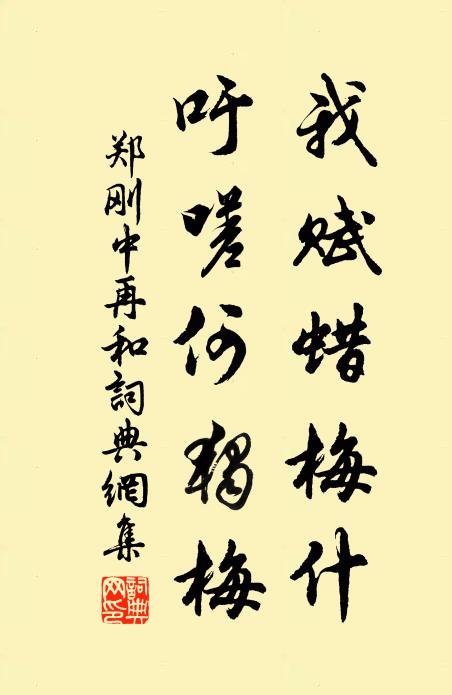 我赋蜡梅什
吁嗟何独梅
郑刚中再和詞典網集
詞典网印